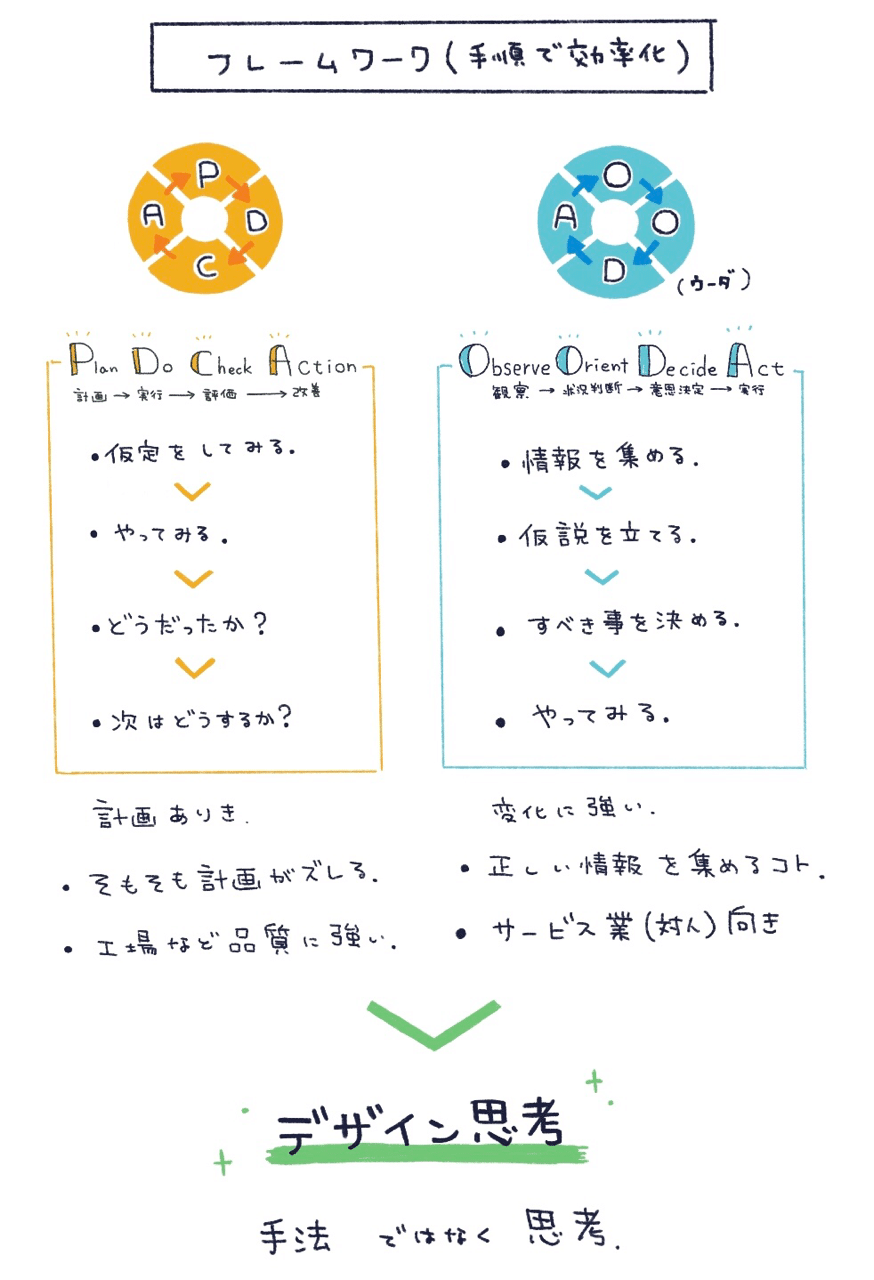 フレームワーク(手順で効率化)
P
D
C
A
O
O
D
A
(ウーダ)
Plan Do Check Action
計画→実行→評価→改善
・仮定をしてみる.
・やってみる.
・どうだったか?
・次はどうするか?
計画ありき.
・そもそも計画がズレる.
・工場など品質に強い.
Observe Orient Decide Act
観察→状況判断→意思決定→実行
・情報を集める.
・仮説を立てる.
・すべき事を決める.
・やってみる.
変化に強い.
・正しい情報を集めるコト.
・サービス業(対人)向き
デザイン思考
手法ではなく思考.